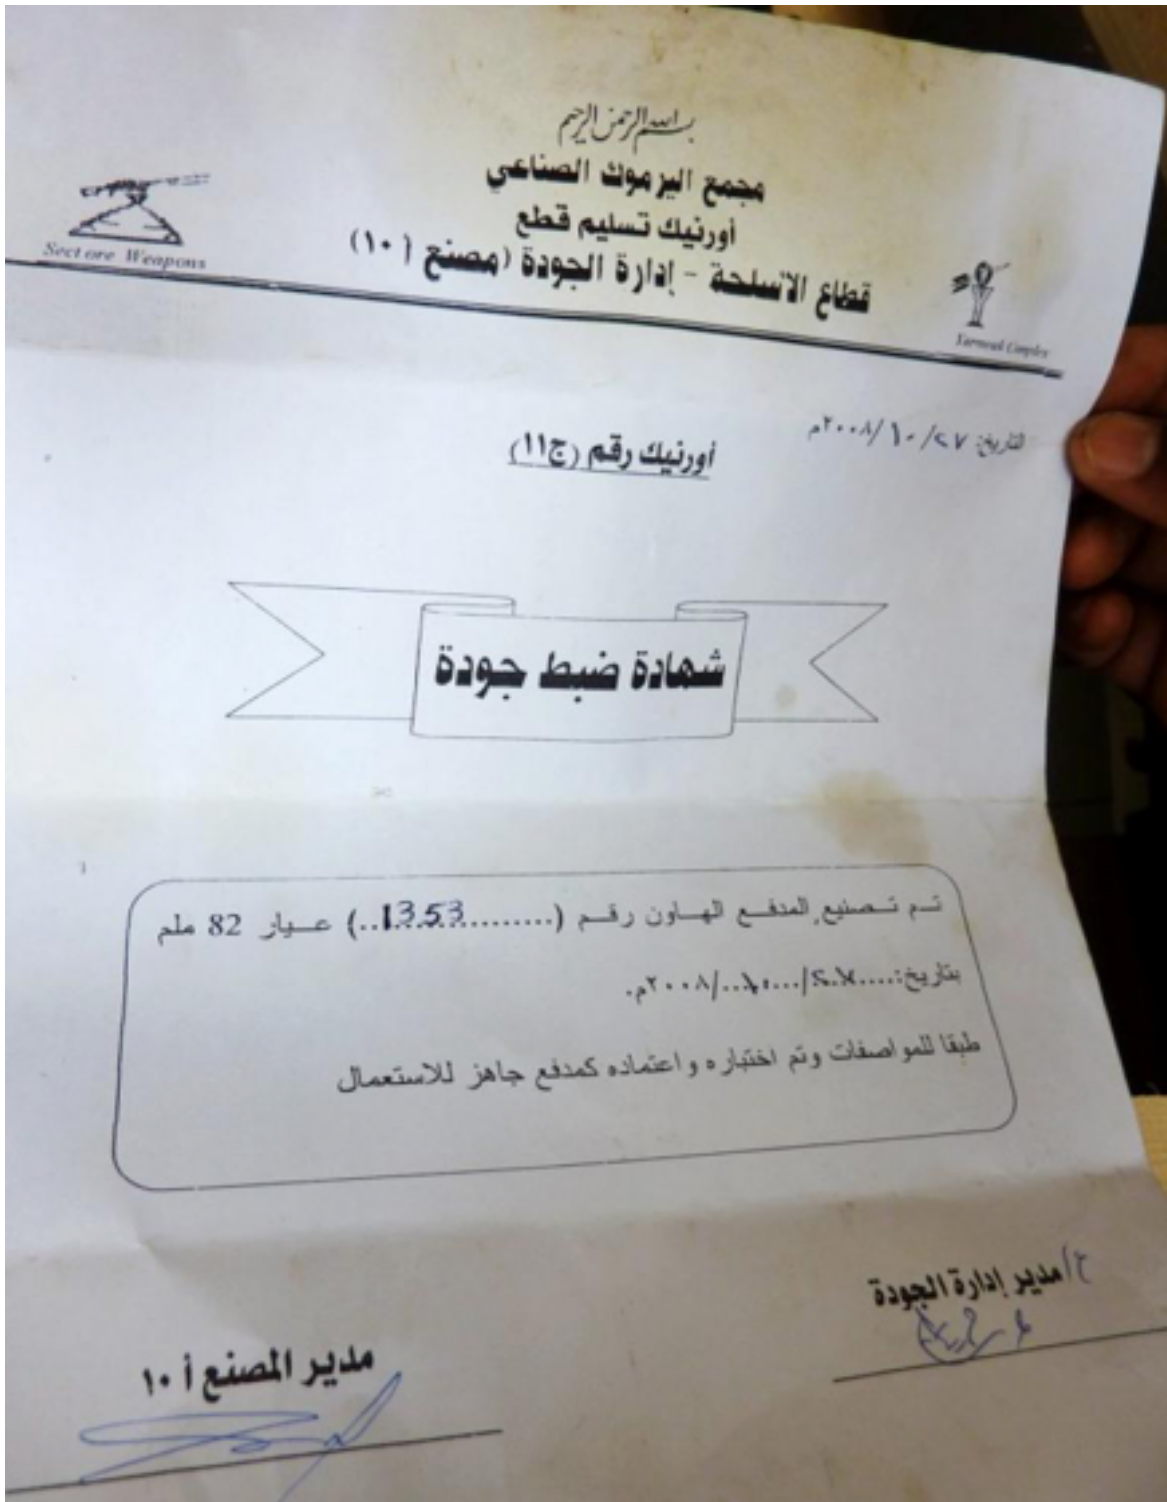 بسم الله الرحمن الرحيم
مجمع اليرموك الصناعي
أورنيك تسليم قطع
قطاع الاسلحة - إدارة الجودة (مصنع أ ١٠)
Sect ore Weapons
Yarmouk Complex
التاريخ: ٢٧/١٠/٢٠٠٨م
أورنيك رقم (ج١١)
شهادة ضبط جودة
تم تصنيع المدفع الهاون رقم (..1353.........) عيار 82 ملم
بتاريخ:..../...١٠.../٢٠٠٨م.
طبقا للمواصفات وتم اختباره واعتماده كمدفع جاهز للاستعمال
ع/مدير إدارة الجودة
مدير المصنع أ ١٠